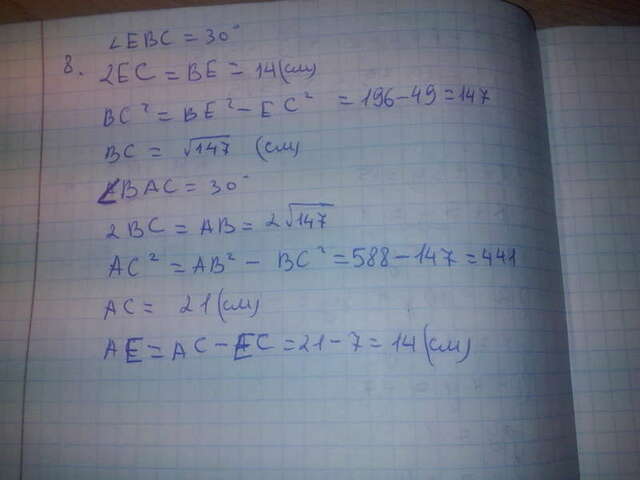 ∠EBC = 30°
8. 2EC = BE = 14 (см)
BC² = BE² − EC² = 196 − 49 = 147
BC = √147 (см)
∠BAC = 30°
2BC = AB = 2√147
AC² = AB² − BC² = 588 − 147 = 441
AC = 21 (см)
AE = AC − EC = 21 − 7 = 14 (см)